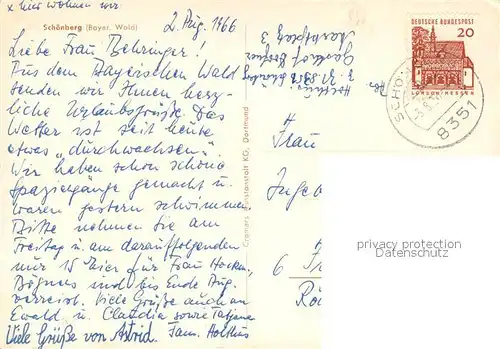 x hier wohnen wir
Schönberg (Bayer. Wald)
2. Aug. 1966
Liebe Frau Behringer!
Aus dem Bayerischen Wald
senden wir Ihnen herz-
liche Urlaubsgrüße. Das
Wetter ist seit heute
etwas „durchwachsen".
Wir haben schon schöne
Spaziergänge gemacht u.
waren gestern schwimmen.
Bitte nehmen Sie am
Freitag u. am darauffolgenden
nur 15 Eier für Frau
und bis Ende Aug.
verreist. Viele Grüße auch an
Ewald u. Claudia sowie Tatjana
Viele Grüße von Astrid. Fam. Holthus
Cramers Kunstanstalt KG, Dortmund
Holthus
Gasthof
Marktplatz 3
DEUTSCHE BUNDESPOST
20
LORSCH/HESSEN
SCHÖN
8351
Frau
Inge
6
privacy protection
Datenschutz